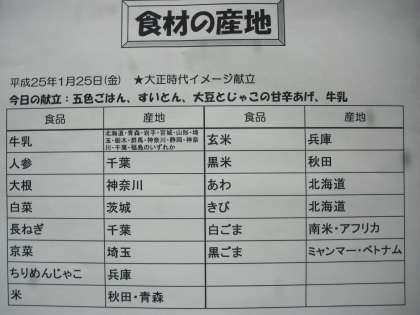 食材の産地
平成25年1月25日(金) ★大正時代イメージ献立
今日の献立：五色ごはん、すいとん、大豆とじゃこの甘辛あげ、牛乳
食品 産地 食品 産地
牛乳 北海道・青森・岩手・宮城・山形・埼玉・栃木・群馬・神奈川・静岡・神奈川・千葉・福島のいずれか 玄米 兵庫
人参 千葉 黒米 秋田
大根 神奈川 あわ 北海道
白菜 茨城 きび 北海道
長ねぎ 千葉 白ごま 南米・アフリカ
京菜 埼玉 黒ごま ミャンマー・ベトナム
ちりめんじゃこ 兵庫
米 秋田・青森